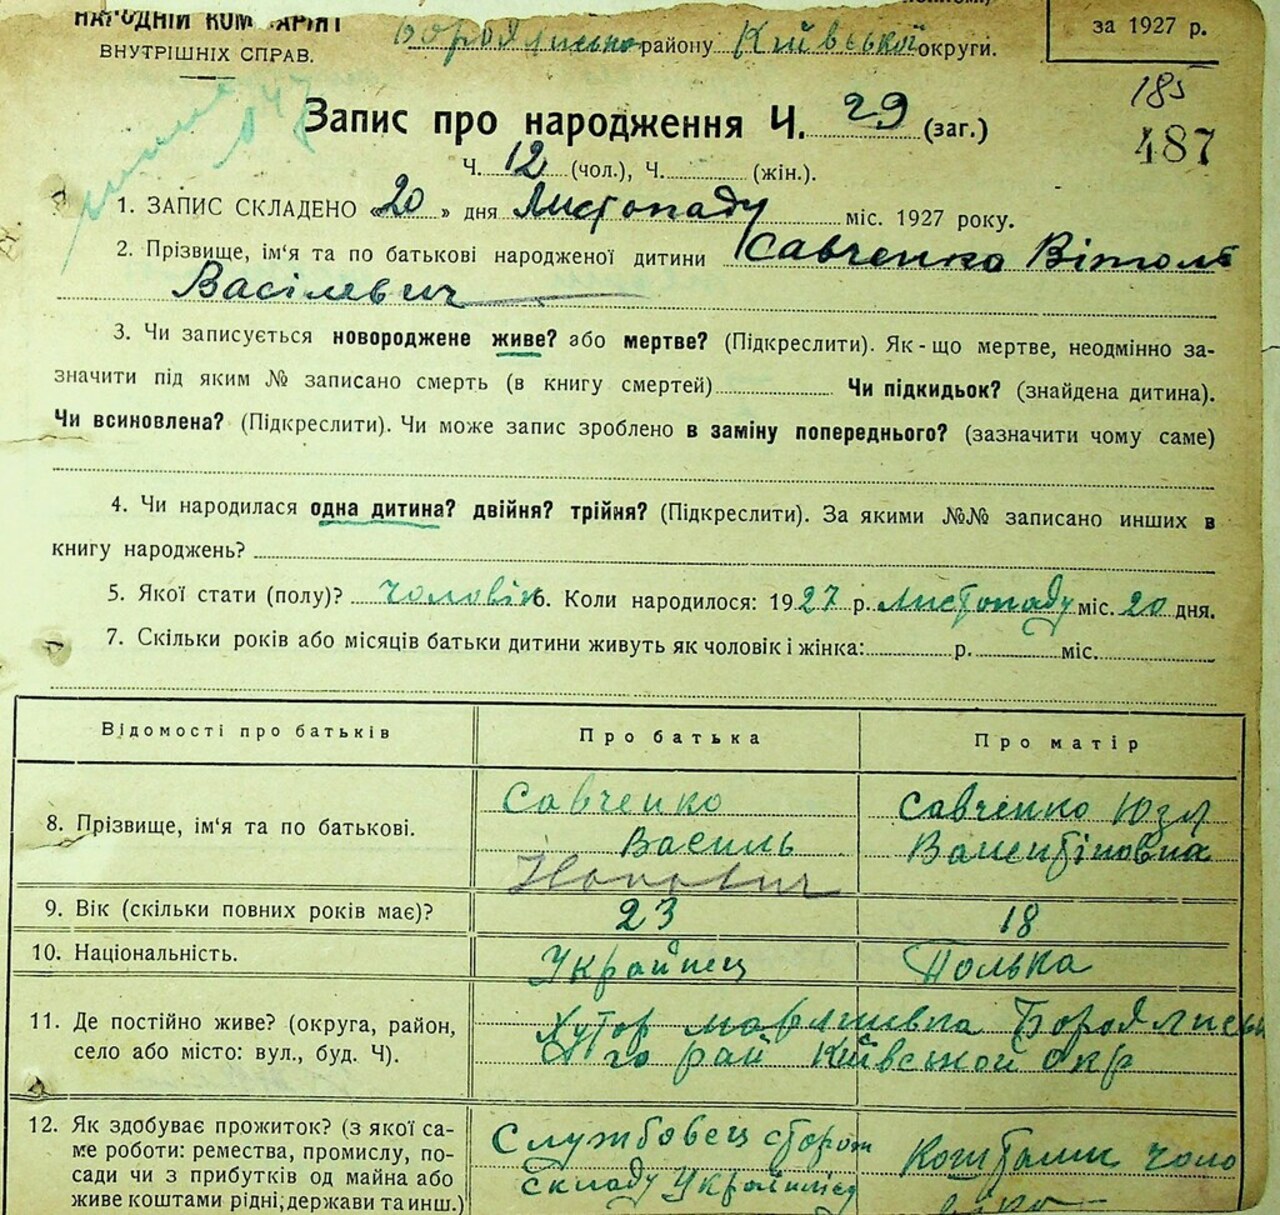 НАРОДНІЙ КОМ АРІЯТ
ВНУТРІШНІХ СПРАВ.
району Київської округи.
за 1927 р.
185
487
Запис про народження Ч. 29 (заг.)
Ч. 12 (чол.), Ч. (жін.).
1. ЗАПИС СКЛАДЕНО «20» дня Листопаду міс. 1927 року.
2. Прізвище, ім'я та по батькові народженої дитини Савченко Вітольд
Васілевич
3. Чи записується новороджене живе? або мертве? (Підкреслити). Як-що мертве, неодмінно за-
значити під яким № записано смерть (в книгу смертей) Чи підкидьок? (знайдена дитина).
Чи всиновлена? (Підкреслити). Чи може запис зроблено в заміну попереднього? (зазначити чому саме)
4. Чи народилася одна дитина? двійня? трійня? (Підкреслити). За якими №№ записано инших в
книгу народжень?
5. Якої стати (полу)? чоловік 6. Коли народилося: 1927 р. Листопаду міс. 20 дня.
7. Скільки років або місяців батьки дитини живуть як чоловік і жінка: р. міс.
Відомості про батьків Про батька Про матір
8. Прізвище, ім'я та по батькові. Савченко Василь Савченко Юзя Валентіновна
9. Вік (скільки повних років має)? 23 18
10. Національність. Українец Полька
11. Де постійно живе? (округа, район, Хутор
село або місто: вул., буд. Ч). го рай Київської окр
12. Як здобуває прожиток? (з якої са- Службовец сторож
ме роботи: ремества, промислу, по- Коштами чоло
сади чи з прибутків од майна або складу
живе коштами рідні, держави та инш.) віка